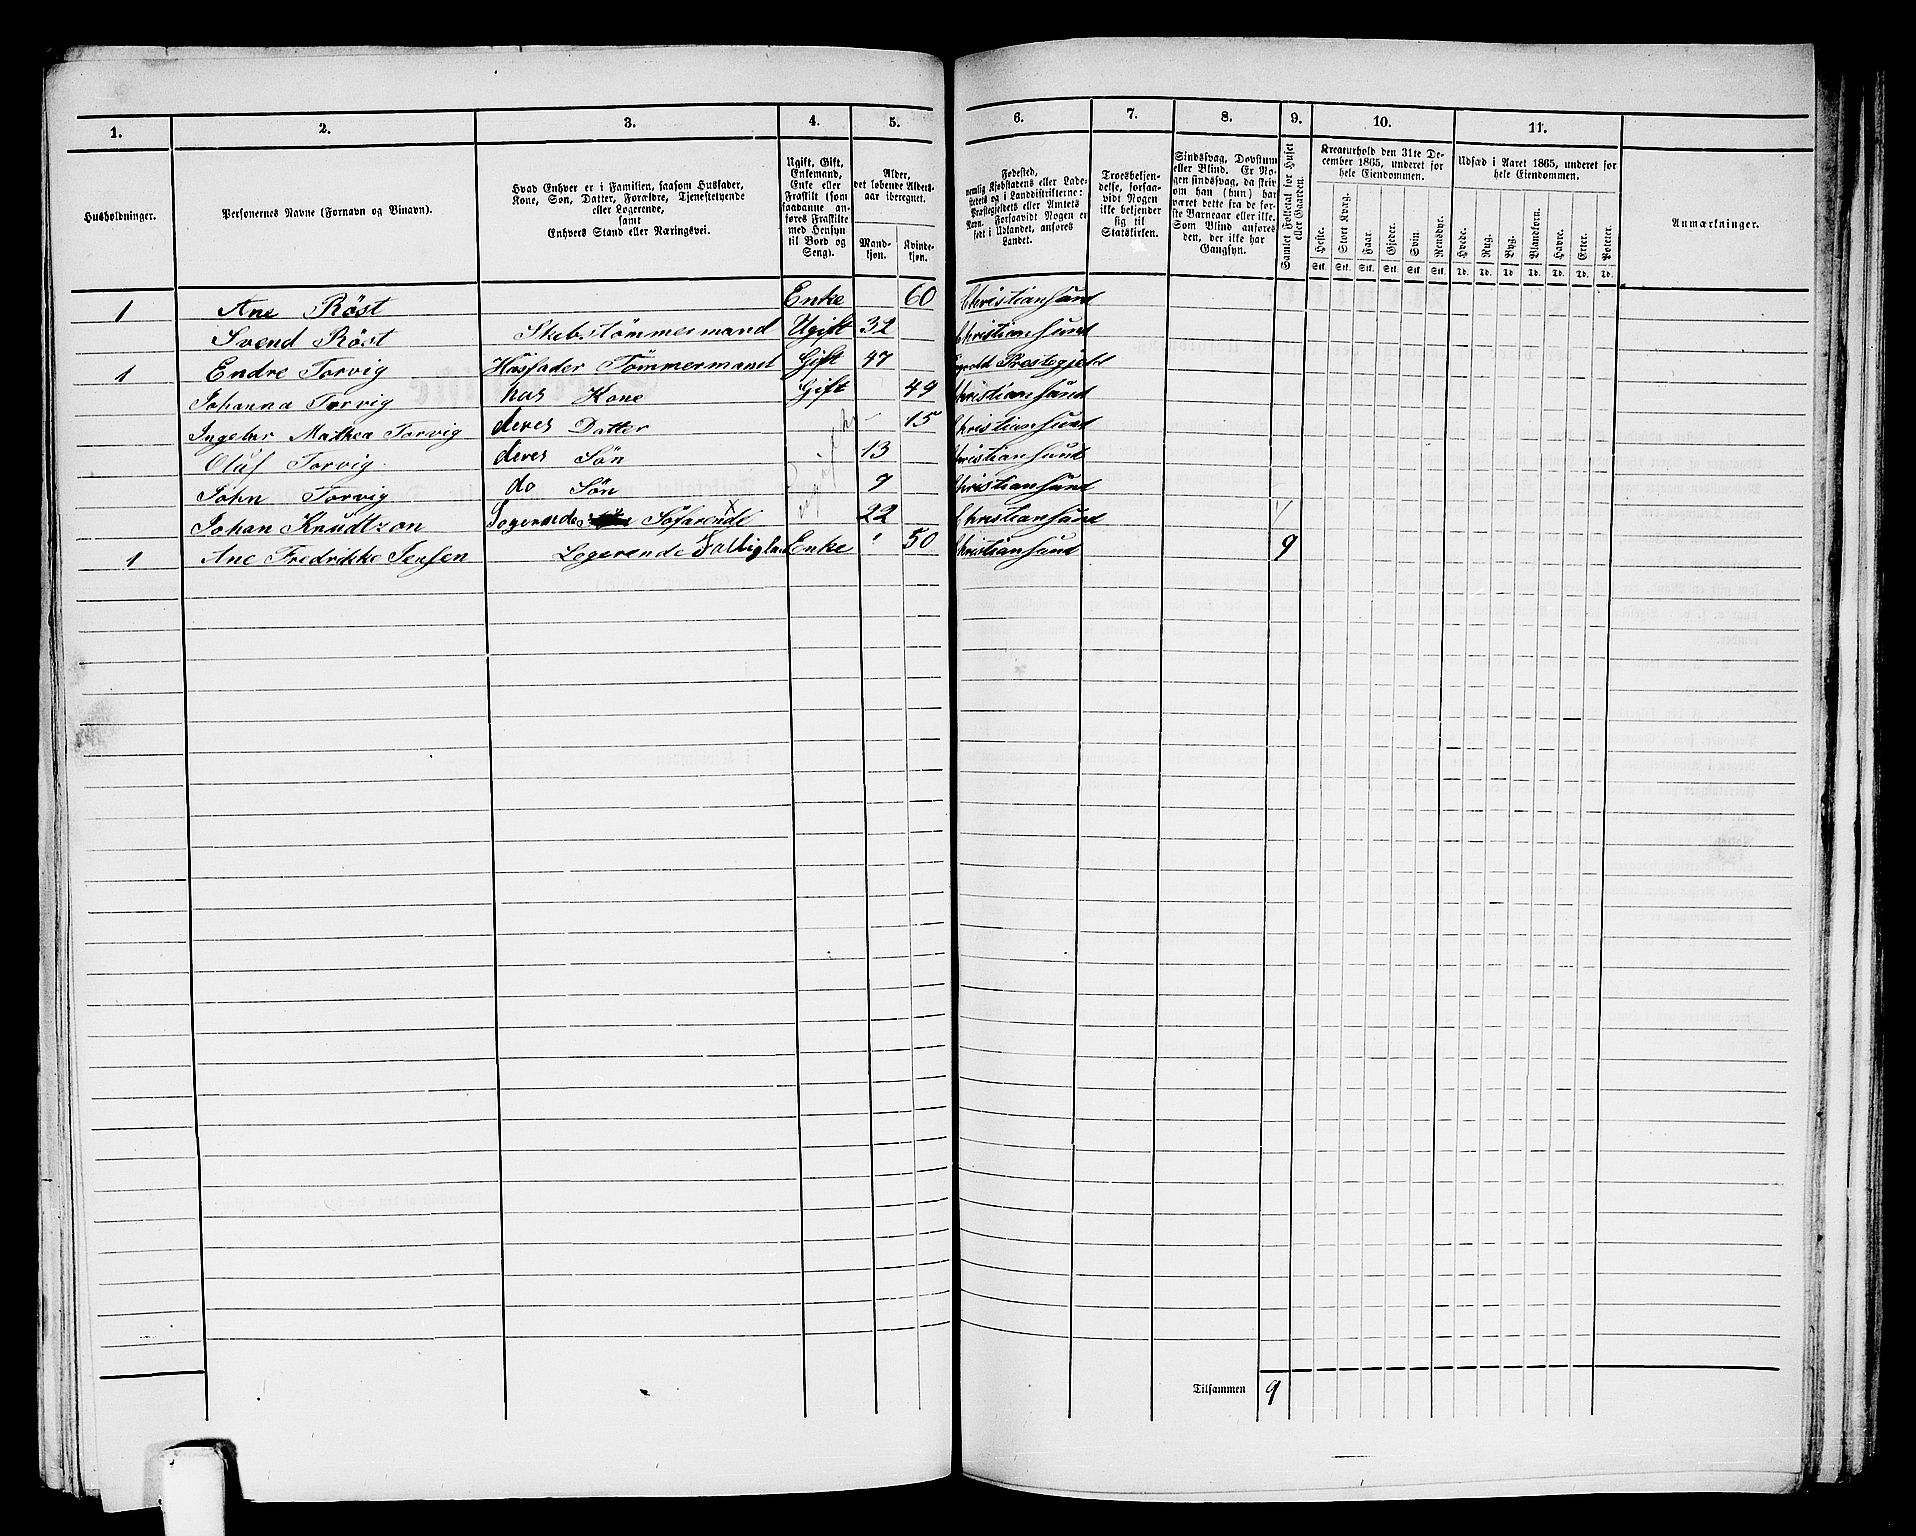 1. 2. 3. 4. 5. 6. 7. 8. 9. 10. 11.
Husholdninger.
Personernes Navne (Fornavn og Binavn).
Hvad Enhver er i Familien, saasom Husfader,
Kone, Søn, Datter, Forældre, Tjenestetyende
eller Logerende,
samt
Enhvers Stand eller Næringsvei.
Ugift, Gift,
Enkemand,
Enke eller
Fraskilt (som
saadanne an-
føres Fraskilte
med Hensyn
til Bord og
Seng).
Alder,
det løbende Alders-
aar iberegnet.
Mand-
kjøn.
Kvinde-
kjøn.
Fødested,
nemlig Kjøbstadens eller Lade-
stedets og i Landdistrikterne:
Præstegjeldets eller Amtets
Navn. Forsaavidt Nogen er
født i Udlandet, anføres
Landet.
Troesbekjen-
delse, forsaa-
vidt Nogen
ikke bekjender
sig til
Statskirken.
Sindssvag, Døvstum
eller Blind. Er No-
gen sindssvag, da skriv
om han (hun) har
været dette fra de før-
ste Barneaar eller ikke.
Som Blind anføres
den, der ikke har
Gangsyn.
Samlet Folketal for Huset
eller Gaarden.
Kreaturhold den 31te De-
cember 1865, underet for
hele Eiendommen.
Heste. Stort Kvæg. Faar. Gjeder. Svin. Rensdyr.
Stk. Stk. Stk. Stk. Stk. Stk.
Udsæd i Aaret 1865, underet for
hele Eiendommen.
Hvede. Rug. Byg. Blandkorn. Havre. Erter. Poteter.
Td. Td. Td. Td. Td. Td. Td.
Anmærkninger.
1 Ane Röst Enke 60 Christiansund
Svend Röst Skibstömmermand Ugift 32 Christiansund
1 Endre Torvig Husfader Tömmermand Gift 47 Prestegjeld
Johanna Torvig has Kone Gift 49 Christiansund
Ingebr Mathea Torvig deres Datter 15 Christiansund
Oluf Torvig deres Sön 13 Christiansund
John Torvig do Sön 9 Christiansund
Johan Knudtzon Logerende Söfarende ugift 22 Christiansund
1 Ane Fredrikke Jensen Logerende Enke 50 Christiansund 9
Tilsammen 9